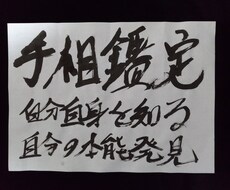 手相鑑定
自分自身を知る
自分の本能発見